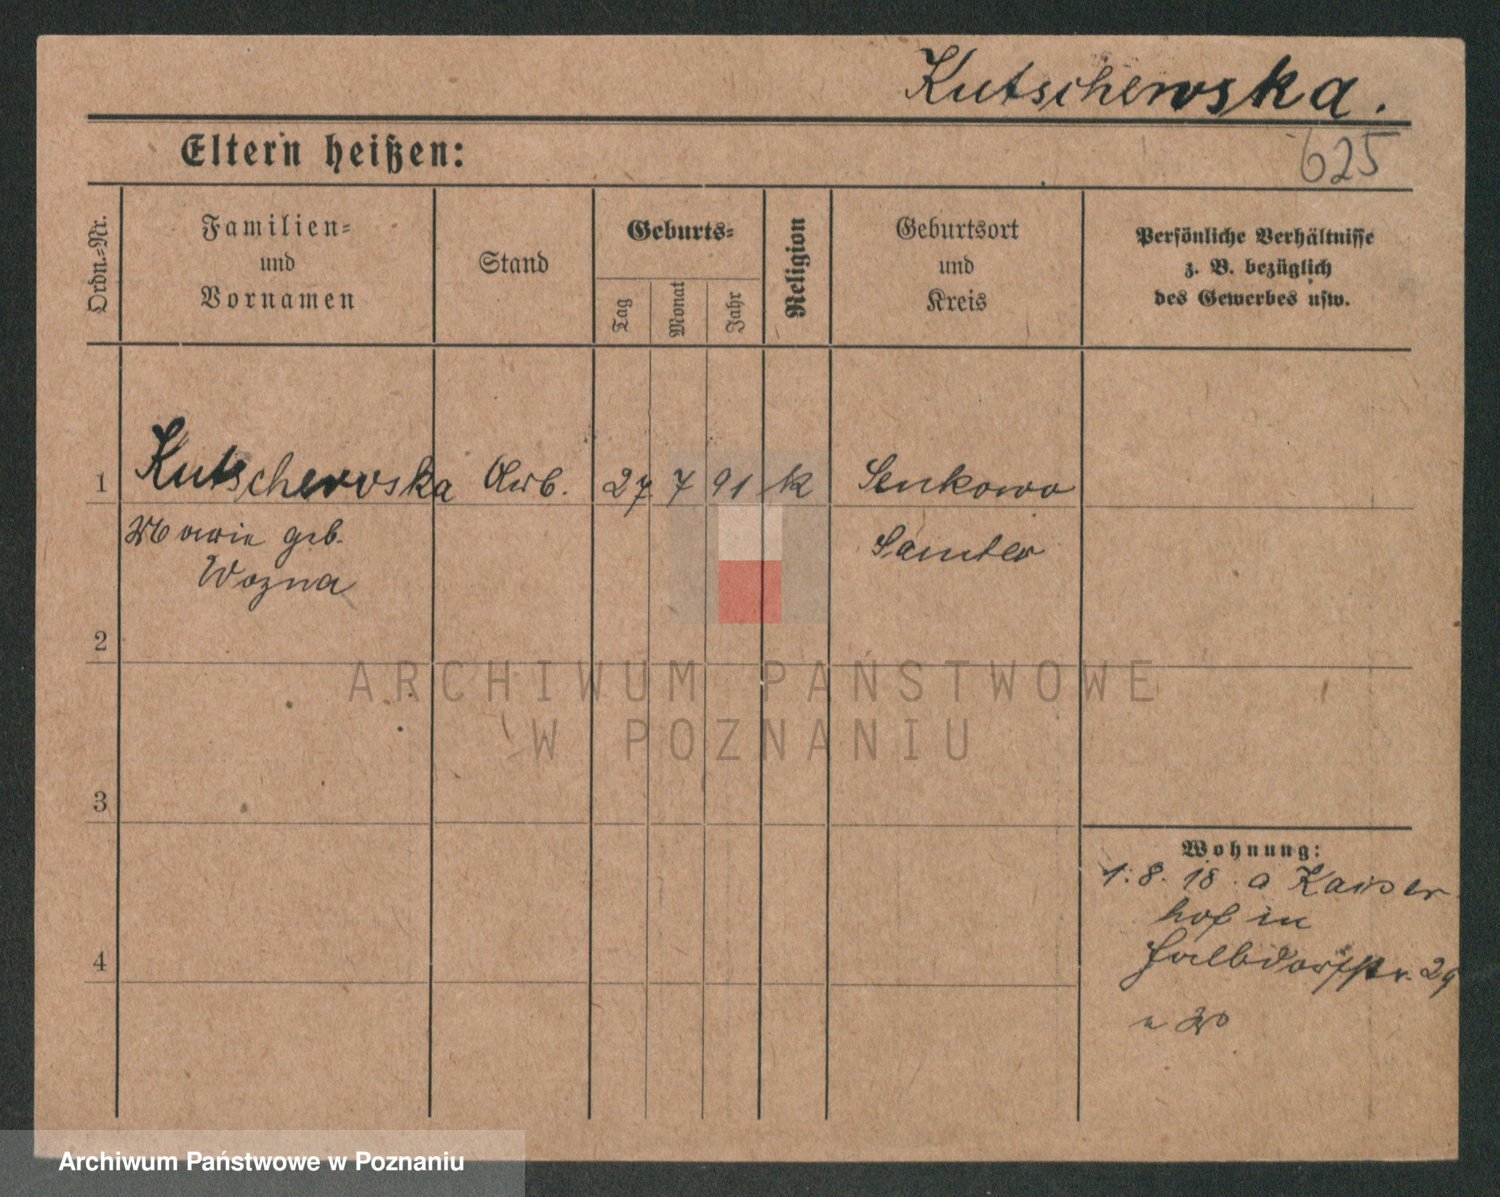 Kutschewska.
625
Eltern heißen:
Ordn.-Nr.
Familien-
und
Vornamen
Stand
Geburts-
Tag
Monat
Jahr
Religion
Geburtsort
und
Kreis
Persönliche Verhältnisse
z. B. bezüglich
des Gewerbes usw.
1 Kutschewska Arb. 27 7 91 k Senkowo
Marie geb. Samter
Wozna
2
ARCHIWUM PAŃSTWOWE
W POZNANIU
3
Wohnung:
1.8.18. a Kaiser
hof in
4
Halbdorfstr. 29
Archiwum Państwowe w Poznaniu